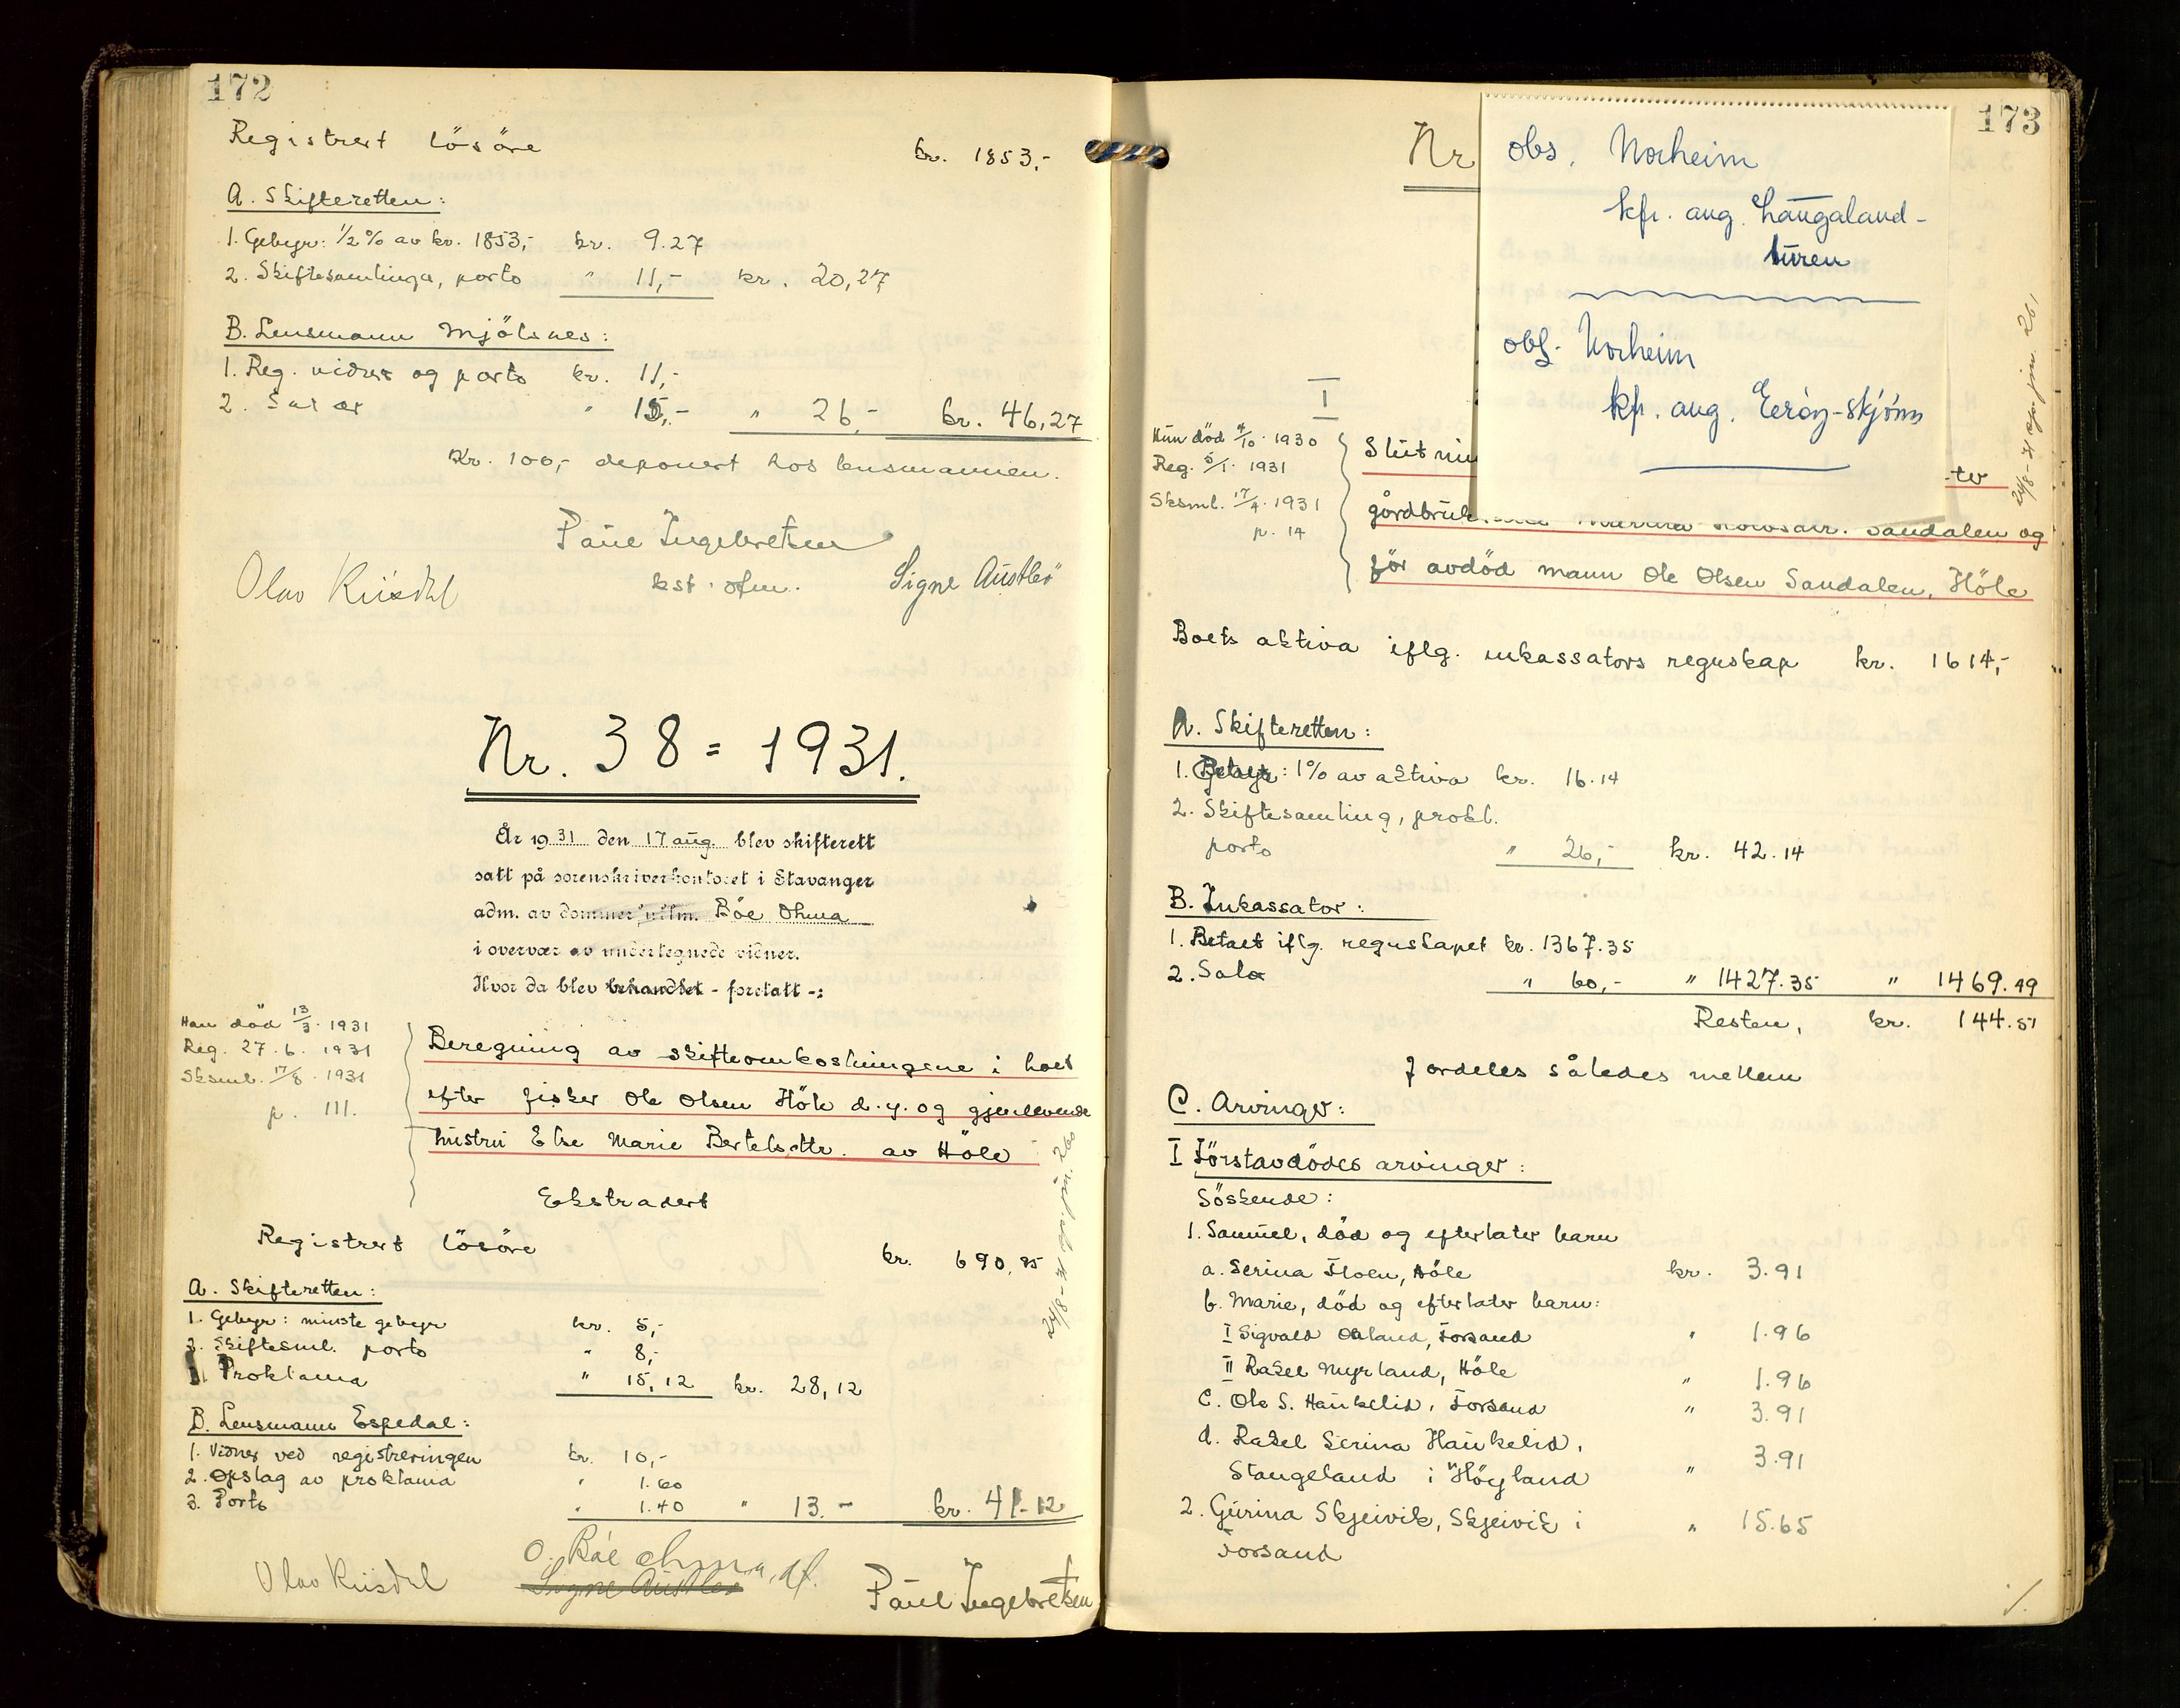 172
Registrert lösöre kr. 1853,-
A. Skifteretten:
1. Gebyr: 1/2 % av kr. 1853,- kr. 9.27
2. Skiftesamlinga, porto " 11,- kr. 20,27
B. Lensmann Mjölsnes:
1. Reg. vidner og porto kr. 11,-
2. Salær " 15,- " 26,- kr. 46,27
Kr. 100,- deponert hos lensmannen.
Paul Ingebretsen
Olav Riisdal kst. ofm. Signe Austbö
Nr. 38 = 1931.
År 1931 den 17 aug. blev skifterett
satt på sorenskriverkontoret i Stavanger
adm. av dommerfullm. Böe Ohma
i overvær av undertegnede vidner.
Hvor da blev behandlet - foretatt -:
Han död 13/3. 1931
Reg. 27.6. 1931
Sksml. 17/8. 1931
p. 111.
Beregning av skifteomkostningene i boet
efter fisker Ole Olsen Höle d.y. og gjenlevende
hustru Else Marie Bertelsdtr. av Höle
Ekstradert
24/8-31 
Registrert lösöre kr. 690,85
A. Skifteretten:
1. Gebyr: minste gebyr kr. 5,-
2. Skiftesml. porto " 8,-
Proklama " 15,12 kr. 28,12
B. Lensmann Espedal:
1. Vidner ved registreringen kr. 10,-
2. Opslag av proklama " 1.60
3. Porto " 1.40 " 13.- kr. 41.12
O. Böe Ohma, df.
Olav Riisdal Signe Austbö Paul Ingebretsen
173
Nr
obs. Norheim
kfr. ang. Langaland-
turen
obs. Norheim
kfr. ang. Eeröy-skjönn
I
Hun död 4/10. 1930
Reg. 5/1. 1931
Sksml. 17/4. 1931
p. 14
Slutnin
gårdbruk Sandalen og
för avdöd mann Ole Olsen Sandalen, Höle
24/8-31
Boets aktiva iflg. inkassators regnskap kr. 1614,-
A. Skifteretten:
1. Gebyr: 1% av aktiva kr. 16.14
2. Skiftesamling, prokl.
porto " 26,- kr. 42.14
B. Inkassator:
1. Betalt iflg. regnskapet kr. 1367.35
2. Salær " 60,- " 1427.35 " 1469.49
Resten, kr. 144.51
fordeles således mellem
C. Arvinger:
I Förstavdödes arvinger:
Söskende:
1. Samuel, död og efterlater barn
a. Serina Floen, Höle kr. 3.91
b. Marie, död og efterlater barn:
I Sigvald Oaland, Forsand " 1.96
II Rakel Myrland, Höle " 1.96
c. Ole S. Haukelid, Forsand " 3.91
d. Rakel Serina Haukelid,
Stangeland i Höyland " 3.91
2. Gurina Skjeivik, Skjeivik i " 15.65
Forsand